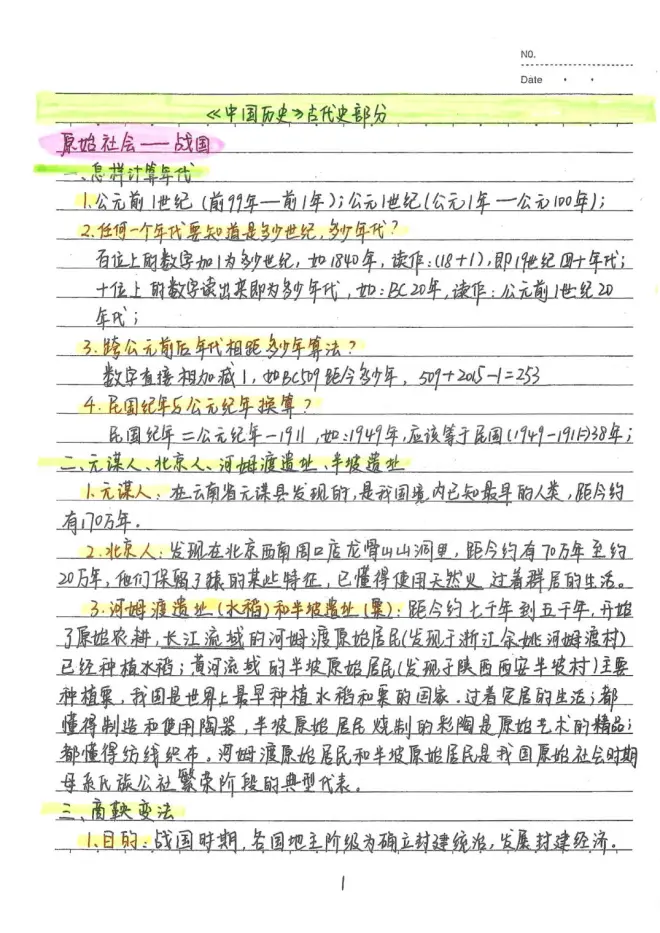 NO.
Date
《中国历史》古代史部分
原始社会——战国
一、怎样计算年代
1.公元前1世纪(前99年—前1年);公元1世纪(公元1年—公元100年);
2.任何一个年代要知道是多少世纪,多少年代?
百位上的数字加1为多少世纪,如1840年,读作:(18+1),即19世纪四十年代;
十位上的数字读出来即为多少年代,如:BC20年,读作:公元前1世纪20
年代;
3.跨公元前后年代相距多少年算法?
数字直接相加减1,如BC509距今多少年,509+2015-1=253
4.民国纪年与公元纪年换算?
民国纪年=公元纪年-1911,如:1949年,应该等于民国(1949-1911=)38年;
二、元谋人、北京人、河姆渡遗址、半坡遗址
1.元谋人:在云南省元谋县发现的,是我国境内已知最早的人类,距今约
有170万年.
2.北京人:发现在北京西南周口店龙骨山山洞里,距今约有70万年至约
20万年,他们保留了猿的某些特征,已懂得使用天然火 过着群居的生活。
3.河姆渡遗址(水稻)和半坡遗址(粟):距今约七千年到五千年,开始
了原始农耕,长江流域的河姆渡原始居民(发现于浙江余姚河姆渡村)
已经种植水稻;黄河流域的半坡原始居民(发现于陕西西安半坡村)主要
种植粟,我国是世界上最早种植水稻和粟的国家.过着定居的生活;都
懂得制造和使用陶器,半坡原始居民烧制的彩陶是原始艺术的精品;
都懂得纺线织布。河姆渡原始居民和半坡原始居民是我国原始社会时期
母系氏族公社繁荣阶段的典型代表。
三、商鞅变法
1.目的:战国时期,各国地主阶级为确立封建统治,发展封建经济.
1